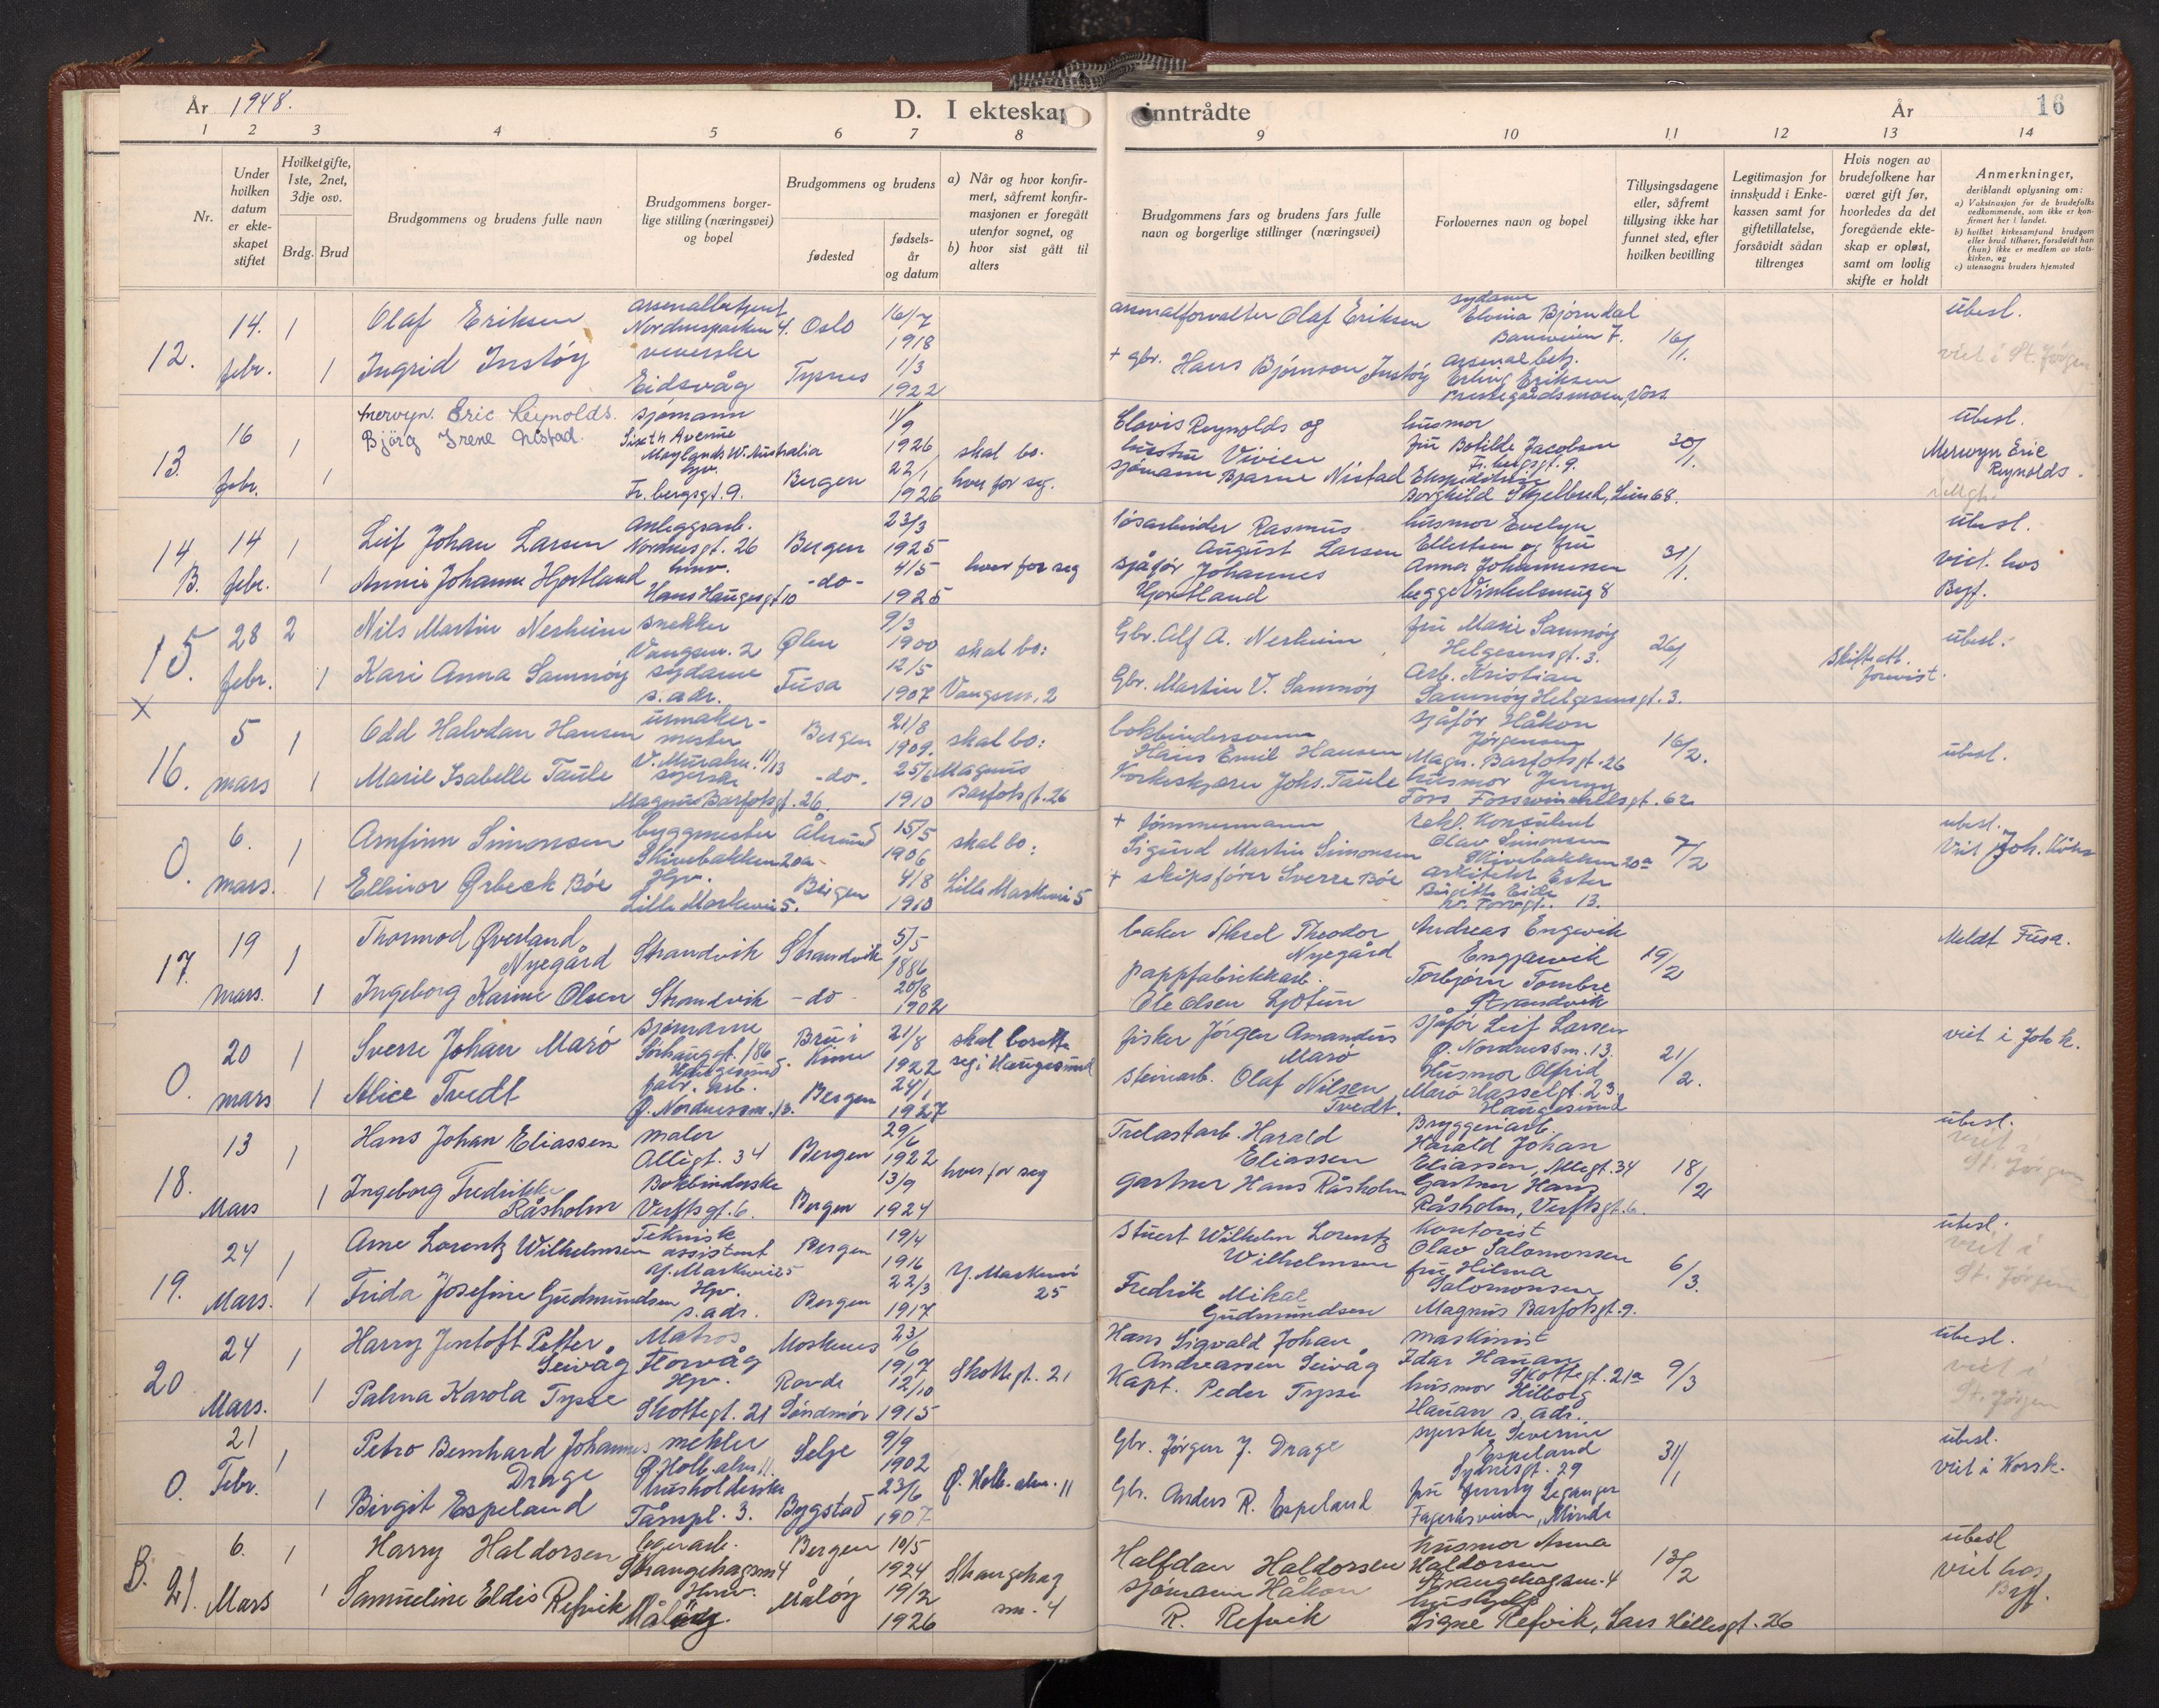 År 1948.
D. I ekteskap
inntrådte
År
16
1 2 3 4 5 6 7 8 9 10 11 12 13 14
Nr.
Under hvilken datum er ekteskapet stiftet
Hvilket gifte, 1ste, 2net, 3dje osv.
Brdg. Brud
Brudgommens og brudens fulle navn
Brudgommens borgerlige stilling (næringsvei) og bopel
Brudgommens og brudens
fødested
fødselsår og datum
a) Når og hvor konfirmert, såfremt konfirmasjonen er foregått utenfor sognet, og
b) hvor sist gått til alters
Brudgommens fars og brudens fars fulle navn og borgerlige stillinger (næringsvei)
Forlovernes navn og bopel
Tillysingsdagene eller, såfremt tillysing ikke har funnet sted, efter hvilken bevilling
Legitimasjon for innskudd i Enkekassen samt for giftetillatelse, forsåvidt sådan tiltrenges
Hvis nogen av brudefolkene har været gift før, hvorledes da det foregående ekteskap er opløst, samt om lovlig skifte er holdt
Anmerkninger, deriblandt oplysning om:
a) Vaksinasjon for de brudefolks vedkommende, som ikke er konfirmert her i landet.
b) hvilket kirkesamfund brudgom eller brud tilhører, forsåvidt han (hun) ikke er medlem av statskirken, og
c) utensogns bruders hjemsted
12. 14. febr. 1 1
Olaf Eriksen
Nordnesparken 4. Oslo 16/7 1918
Ingrid Instøy
veverske Eidsvåg Tysnes 1/3 1922
arsenalforvalter Olaf Eriksen
+ gbr. Hans Bjørnson Instøy
sydame Elvina Bjørndal
7.
Arsenalbetj. Erling Eriksen
Prestegårdsmoen, Voss
16/1.
ubesl.
viet i St. Jørgen
13. 16 febr. 1 1
Mervyn. Eric Reynolds.
Bjørg Irene Nistad.
sjømann
Sixth Avenue
Maylands W. Australia
11/9 1926
hjv.
Fr. bergsgt. 9. Bergen 22/1 1926
skal bo.
hver for seg.
Clovis Reynolds og
hustru Vivien
sjømann Bjarne Nistad
husmor
fru Botilde Jacobsen
Fr. bergsgt. 9.
Ekspeditrise
Borghild Skjelbred, 68.
30/1.
ubesl.
Merwyn Eric
Reynolds.
14 B. 14 febr. 1 1
Leif Johan Larsen
Anleggsarb.
Nordnesgt. 26 Bergen 23/3 1925
Annie Johanne Hjortland
hmv.
Hans Haugesgt 10 -do- 4/5 1925
hver for seg
løsarbeider Rasmus
August Larsen
sjåfør Johannes
Hjortland
husmor Evelyn
Ellertsen og fru
Anna Johannessen
begge Vinkelsmug 8
31/1.
ubesl.
viet. hos
Byf.
15. X 28 febr. 2 1
Nils Martin Nesheim
snekker
Vangsn. 2 Ølen 9/3 1900
Kari Anna Samnøy
sydame
s. adr. Fusa 12/5 1907
skal bo:
Vangsn. 2
Gbr. Alf A. Nesheim
Gbr. Martin V. Samnøy
fru Marie Samnøy
Helgesensgt. 3.
Arb. Kristian
Samnøy Helgesensgt. 3.
26/1
Skifteatt.
forevist.
ubesl.
16. 5 mars 1 1
Odd Halvdan Hansen
urmakermester
V. Muralm. 11/13 Bergen 21/8 1909.
Marie Isabelle Taule
syerske
Magnus Barfotsgt. 26. -do- 25/6 1910
skal bo:
Magnus
Barfotsgt. 26
bokbindersvenn
Hans Emil Hansen
Korkeskjærer Johs. Taule
sjåfør Håkon
Jørgensen
Magn. Barfotsgt. 26
husmor Jenny
Foss Fosswinckelsgt. 62
16/2.
ubesl.
0. 6. mars. 1 1
Arnfinn Simonsen
byggmester
Skivebakken 20a Ålesund 15/5 1906
Ellinor Ørbeck Bøe
Hjv.
Lille Markevei 5. Bergen 4/8 1910
skal bo:
Lille Markevei 5
+ tømmermann
Sigurd Martin Simonsen
+ skipsfører Sverre Bøe
rekl. Konsulent
Olav Simonsen
Skivebakken 20a
arkitekt Ester
Birgitte Eide
Torvgt. 13.
7/2
ubesl.
Viet Joh. Kirke
17. 19 mars. 1 1
Thormod Øverland
Nyegård
Strandvik Strandvik 5/5 1886
Ingeborg Karine Olsen
Strandvik -do- 20/8 1902
baker Aksel Theodor
Nyegård
pappfabrikkarb.
Ole Olsen Lydtun
Andreas Engevik
Engjavik
Torbjørn Tombre
Strandvik
19/2
Meldt Fusa.
0. 20 mars 1 1
Sverre Johan Marø
sjømann
Sørhauggt. 186
Haugesund Bru i Kinn 21/8 1922
Alice Tvedt
fabr. arb.
Ø. Nordnessm. 13. Bergen 24/1 1927
skal bosette
seg i Haugesund
fisker Jørgen Amandus
Marø
steinarb. Olaf Nilsen
Tvedt.
sjåfør Leif Larsen
Ø. Nordnessm. 13.
Husmor Alfrid
Marø Hasselgt. 23.
Haugesund
21/2.
viet i Joh k.
18. 13 Mars 1 1
Hans Johan Eliassen
maler
Allégt. 34 Bergen 29/6 1922
Ingeborg Fredrikke
Råsholm
Bokbinderske
Verftsgt. 6. Bergen 13/9 1924
hver for seg
Trelastarb. Harald
Eliassen
Gartner Hans Råsholm
Bryggenarb.
Harald Johan
Eliassen, Allegt. 34
Gartner Hans
Råsholm, Verftsgt. 6.
18/2
ubesl.
viet i
St. Jørgen
19. 24 Mars. 1 1
Arne Lorentz Wilhelmsen
Teknisk
assistent
Y. Markevei 25 Bergen 19/4 1916
Frida Josefine Gudmundsen
Hjv.
s. adr. Bergen 22/3 1917
Y. Markevei
25
Stuert Wilhelm Lorentz
Wilhelmsen
Fredrik Mikal
Gudmundsen
Kontorist
Olav Salomonsen
fru Hilma
Salomonsen
Magnus Barfotsgt. 9.
6/3.
ubesl.
viet i
St. Jørgen
20 24 Mars. 1 1
Harry Jentoft Petter
Seivåg
Matros
Florvåg Moskenes 23/6 1917
Palma Karola Tysse
Hjv.
Skottegt. 21 Rovde
Søndmør 12/10 1915
Skottegt. 21
Hans Sigvald Johan
Andreassen Seivåg
Kapt. Peder Tysse
maskinist
Idar Hauan
Skottegt. 21a
husmor Hilborg
Hauan s. adr.
9/3
ubesl.
viet i
St. Jørgen
0. 21 Febr. 1 1
Petro Bernhard Johannes
Drage
mekler
Ø. Holb. alm. 11. Selje 9/9 1902
Birgit Espeland
husholderske
Tårnpl. 3. Bygstad 23/6 1907
Ø. Holb. alm. 11
Gbr. Jørgen J. Drage
Gbr. Anders R. Espeland
syerske Severine
Espeland
Sydnesgt. 29
fru Jenny Leganger
Fageråsveien, Minde
31/1
ubesl.
viet i Korsk.
B. 21. 6. Mars 1 1
Harry Haldorsen
lagerarb.
Strangehagsm 4 Bergen 10/5 1924
Samueline Eldis Refvik
Hmv.
Måløy. Måløy 19/2 1926
Strangehag
sm. 4
Halfdan Haldorsen
sjømann Håkon
R. Refvik
husmor Anna
Haldorsen
Strangehagsm. 4
hushjelp
Signe Refvik, Lars Hillesgt. 26
13/2
ubesl
viet hos
Byf.